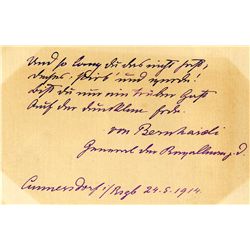 Und so lang du das nicht hast,
Dieses: Stirb' und werde!
Bist du nur ein trüber Gast
Auf der dunklen Erde.
von Bernhardi
General der Kavallerie z. D.
Cunnersdorf i/Rsgb 24.5.1914.